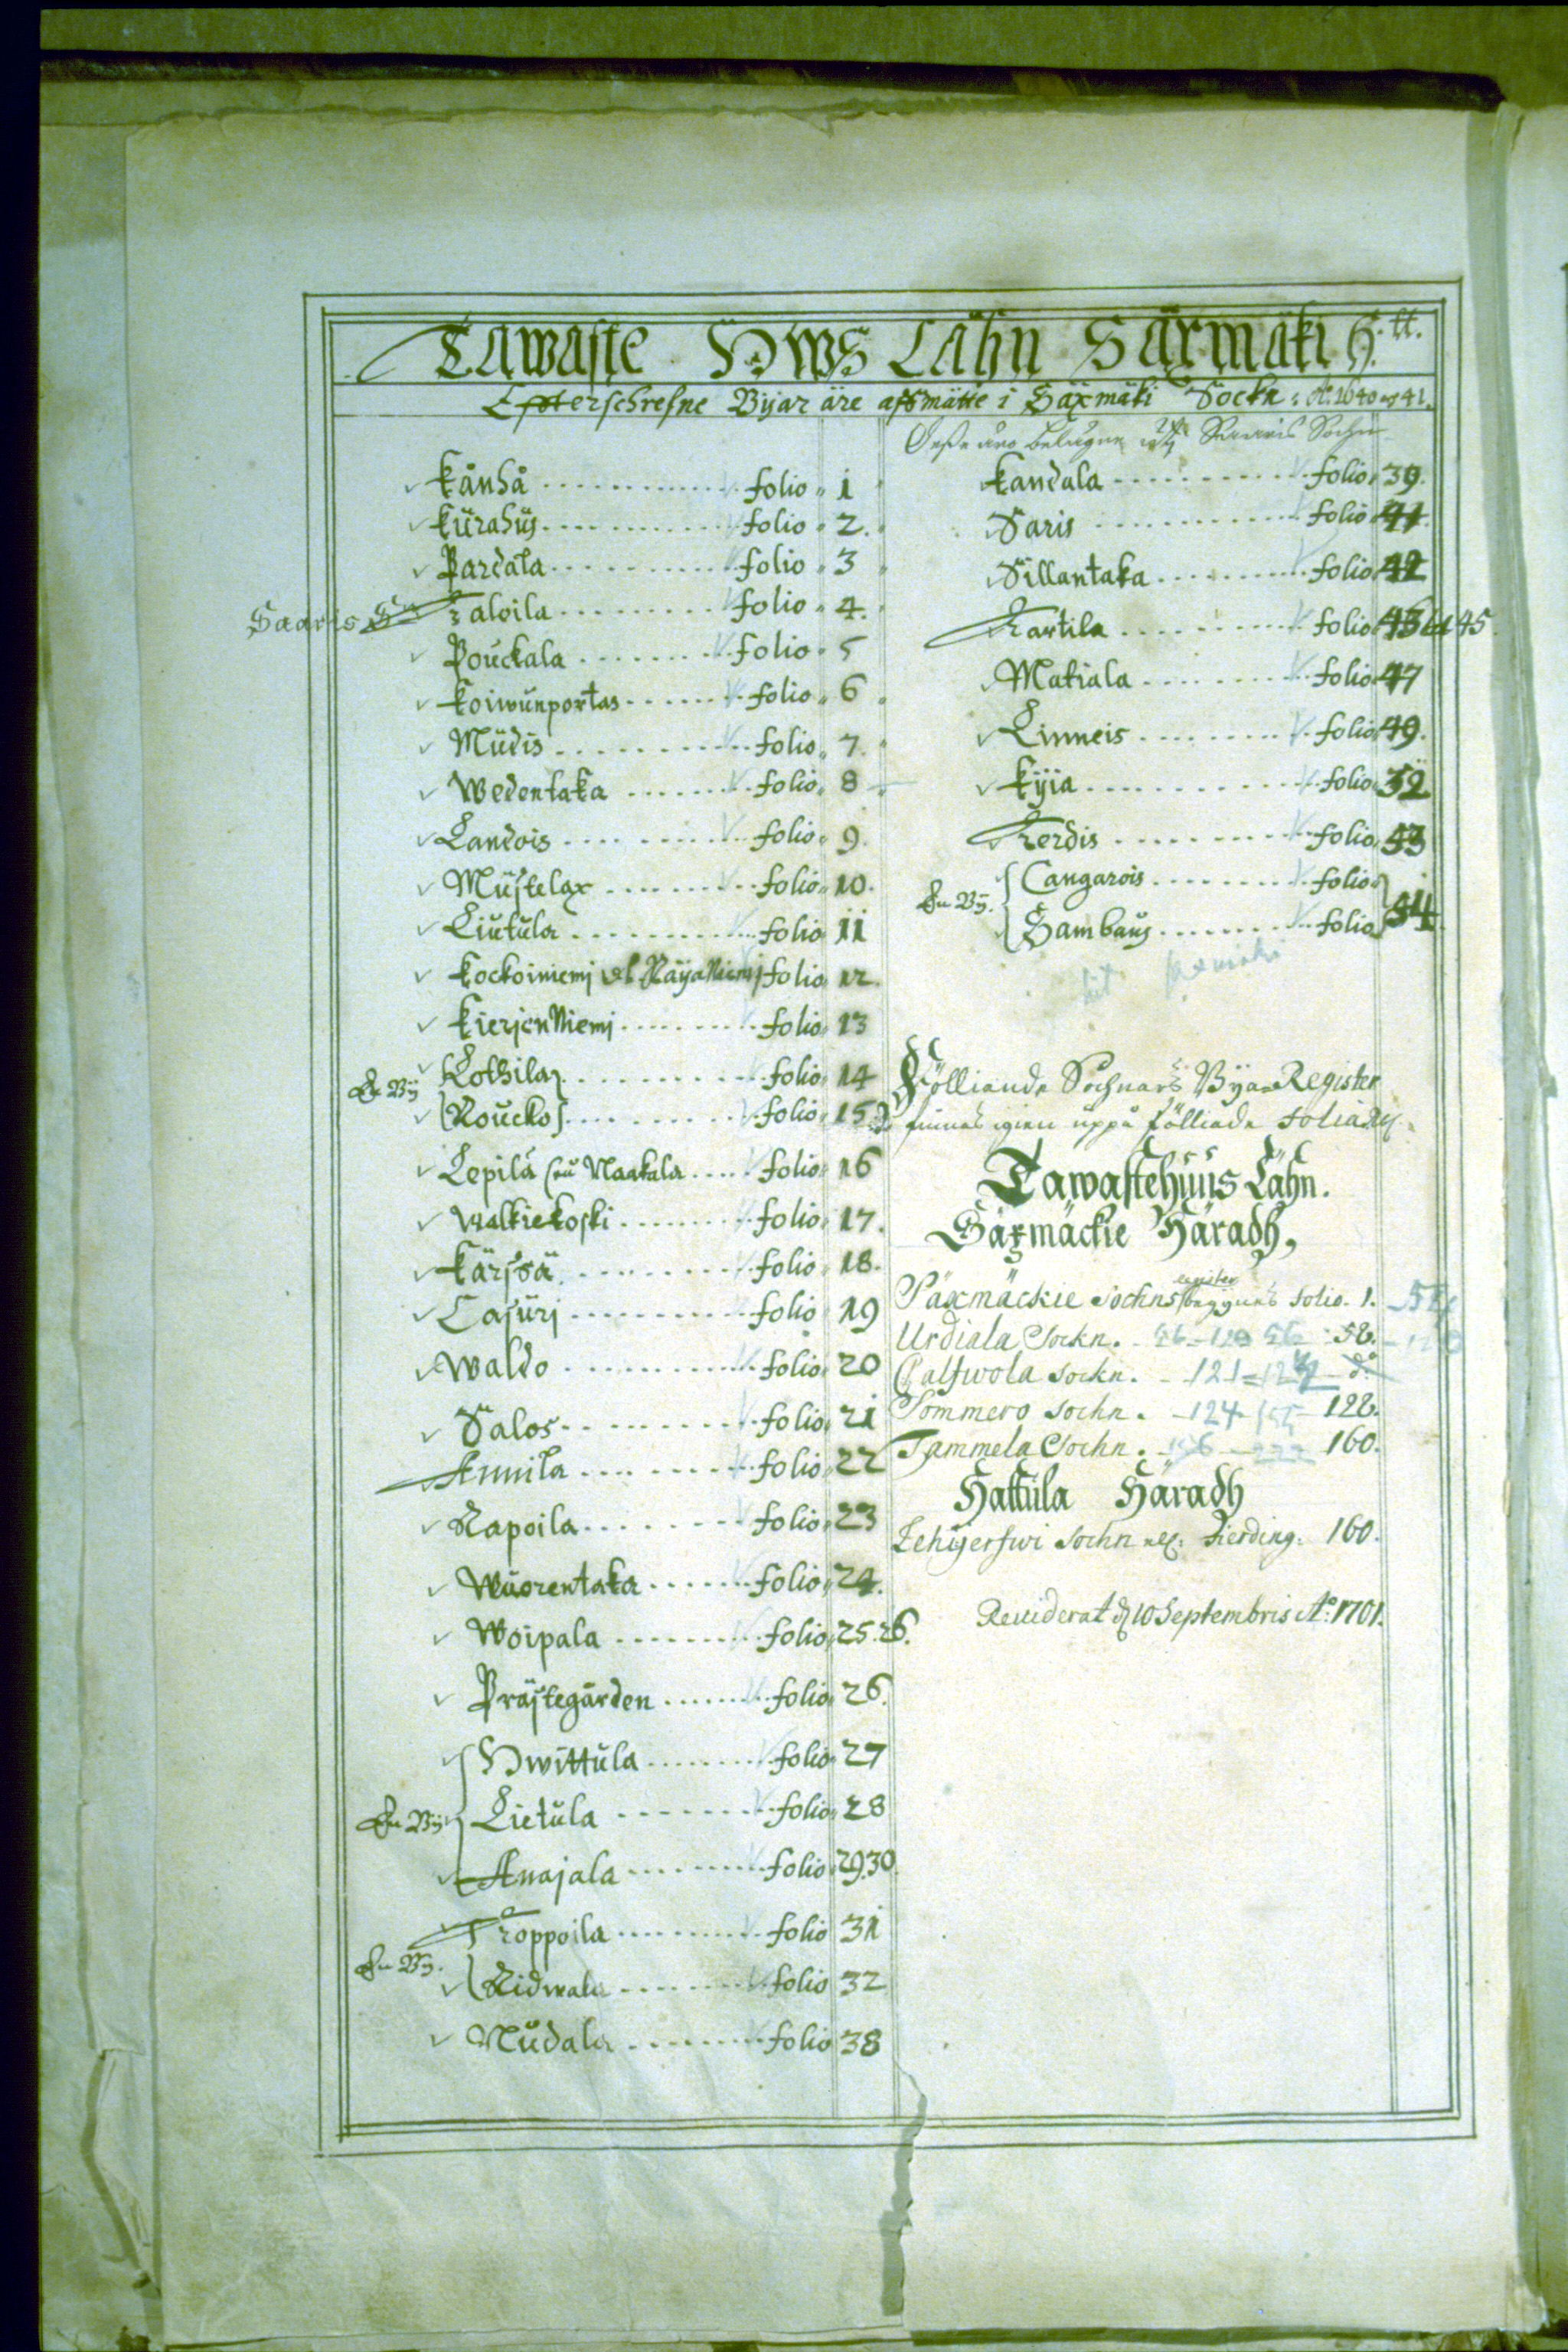 Tawaste Hws Lähn Säxmäki H.tt.
Effterschrefne Byar äre afmätte i Säxmäki Sockn: Ao. 1640 og 41.
Kånhå folio 1
Kurahuj folio 2.
Pardala folio 3
Saaris Sn Taloila folio 4.
Pouckala folio 5
Koiwunportas folio 6
Mudis folio 7.
Wedentaka folio 8
Landois folio 9.
Mustelax folio 10.
Liutula folio 11
Kockoiniemj folio 12.
KierjenNiemj folio 13
En By
Lothila folio 14
Roucko folio 15
Lepila seu Naakala folio 16
Walkiekoski folio 17.
Kärjsä folio 18.
Casurj folio 19
Waldo folio 20
Salos folio 21
Annila folio 22
Rapoila folio 23
Wuorentaka folio 24.
Woipala folio 25.26.
Prästegården folio 26.
Hwittula folio 27
En By Lietula folio 28
Anajala folio 29.30.
Troppoila folio 31
En By.
Ridwala folio 32
Nudala folio 38
äro belägne Saaris Sochn
Kandala folio 39.
Saris folio 41.
Sillantaka folio 42
Kartila folio 43 45
Makiala folio 47
Linneis folio 49.
Kyia folio 52
Kerdis folio 53
En By.
Cangarois folio
Sambauj folio 54
Fölliande Sochnars Byar Register
finnas igien uppå fölliade
Tawastehuus Lähn.
Säxmäckie Häradh,
Säxmäckie Sochns register beggnes folio. 1.
Urdiala Sockn. 58.
Calfwola sockn. 121
Sommero sochn. 124 122.
Tammela Sochn. 160.
Hattula Häradh
Lehijerfwi Sochn Fierding: 160.
Reviderat d 10 Septembris Ao: 1701.